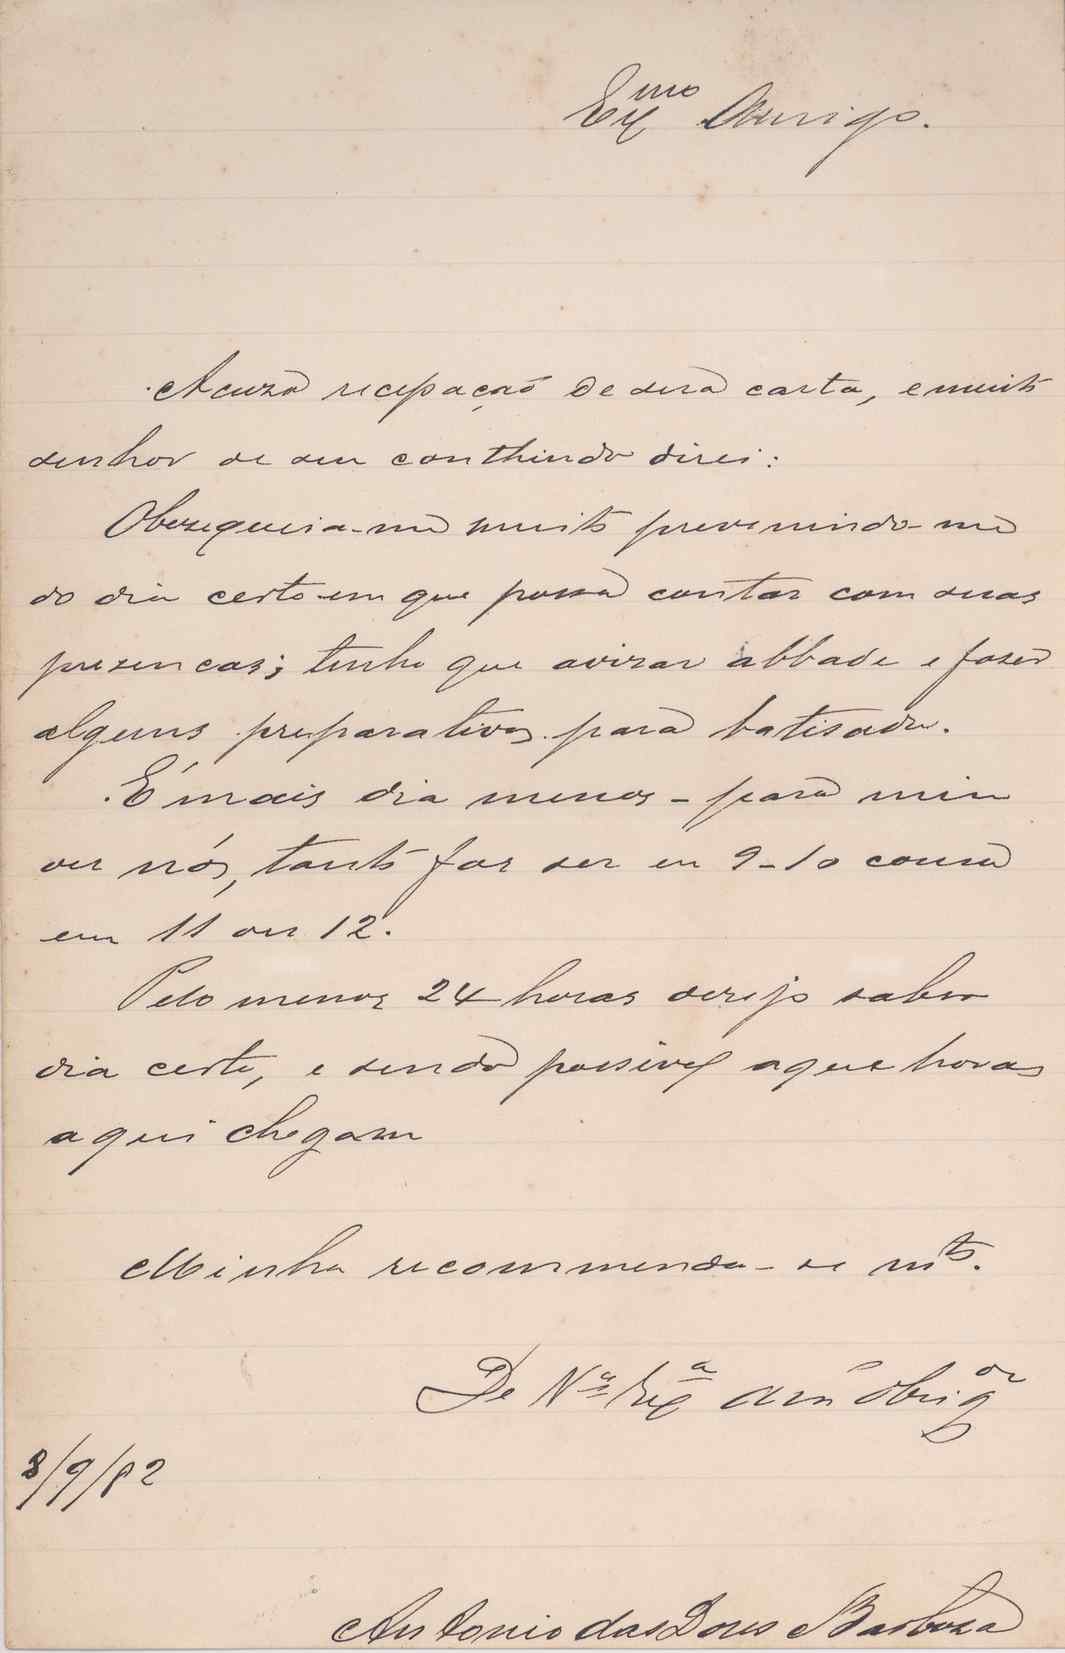 Ex.mo Amigo.
Acuzo recepação de sua carta, e muito
senhor de seu conthindo direi:
Obezequeia-me muito prevenindo-me
do dia certo em que possa contar com suas
presencas; tenho que avizar abbade e fazer
alguns preparativos para batisado.
É mais dia menos - para min
ou nós, tanto faz ser em 9-10 como
em 11 ou 12.
Pelo menos 24 horas desejo saber
dia certo, e sendo possivel a que horas
aqui chegam
Minha recommenda-se mto.
De Exa am obrigdo
8/9/82
Antonio das Dores Barboza